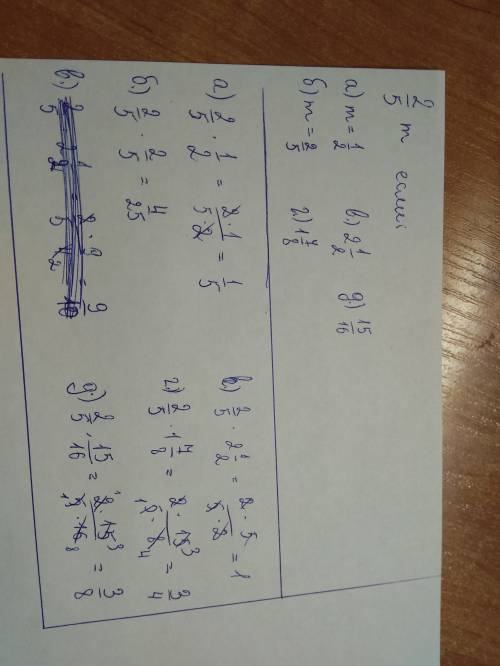 2/5 m если:
а) m = 1/2 в) 2 1/2 д) 15/16
б) m = 2/5 г) 1 7/8
а) 2/5 · 1/2 = 2·1/5·2 = 1/5
б) 2/5 · 2/5 = 4/25
в)
в) 2/5 · 2 1/2 = 2·5/5·2 = 1
г) 2/5 · 1 7/8 = 2·15 3/1 5·8 4 = 3/4
д) 2/5 · 15/16 = 1 2·15 3/1 5·16 8 = 3/8